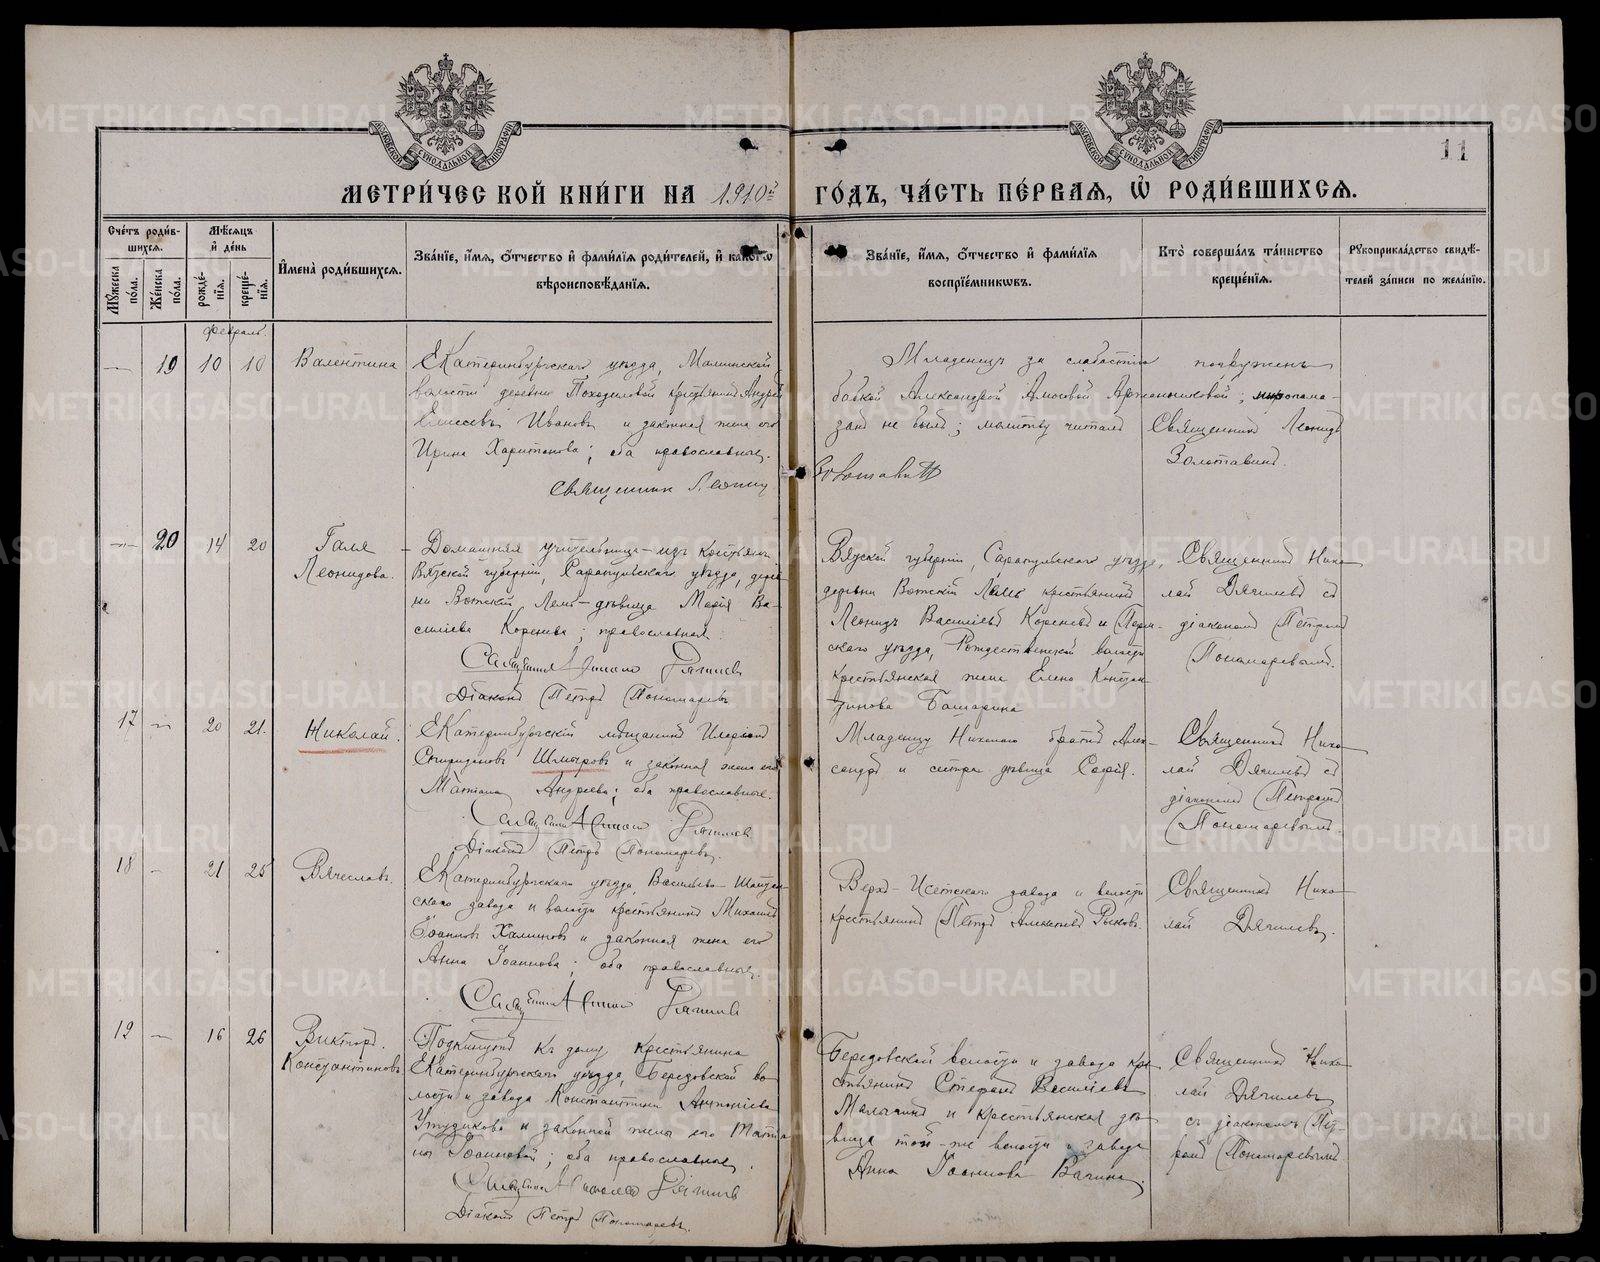 МЕТРИ́ЧЕСКОЙ КНИ́ГИ НА 1910й ГО́ДЪ, ЧА́СТЬ ПЕ́РВАЯ, Ѡ҆ РОДИ́ВШИХСЯ.
11
Сче́тъ роди́в-
шихся.
Мꙋ́жеска
по́ла.
Же́нска
по́ла.
Мѣ́сяцъ
и҆ де́нь
рожде́-
нїя.
креще́-
нїя.
И҆мена̀ роди́вшихся.
Зва́нїе, и҆́мя, ѻ҆́тчество и҆ фами́лїя роди́телей, и҆ како́гѡ
вѣроисповѣ́данїя.
Зва́нїе, и҆́мя, ѻ҆́тчество и҆ фами́лїя
воспрїе́мникѡвъ.
Кто̀ соверша́лъ та́инство
креще́нїя.
Рꙋкоприкла́дство свидѣ́-
телей за́писи по жела́нїю.
Февраль
— 19 10 10 Валентина
Екатеринбургскаго уѣзда, Малинской
волости деревни Походиловой крестьянинъ Андрей
Елисеевъ Ивановъ и законная жена его
Ирина Харитонова; оба православные.
Священник Леонид
Младенецъ за слабостію погруженъ
бабкой Александрой
занъ не былъ; молитву читалъ Священникъ Леонидъ
Золотавинъ.
Золотавин
— 20 14 20 Галя
Леонидова.
Домашняя учительница — изъ крестьянъ
Вятской губерніи, Сарапульскаго уѣзда, дерев-
ни Вотскій Лемъ — дѣвица Марія Ва-
сильева Коренева; православная.
Священник Николай Дягилев
Діаконъ Петръ Пономаревъ
Вятской губерніи, Сарапульскаго уѣзда,
деревни Вотскій Лемъ крестьянинъ
Леонидъ Васильевъ Кореневъ и Перм-
скаго уѣзда, Рождественской волости
крестьянская жена Елена Констан-
тинова Башарина
Священникъ Нико-
лай Дягилевъ съ
діакономъ Петромъ
Пономаревымъ.
17 — 20 21. Николай.
Екатеринбургскій мѣщанинъ Иларіонъ
Спиридоновъ Шмыровъ и законная жена его
Татіана Андреева; оба православные.
Священник Николай Дягилев
Діаконъ Петръ Пономаревъ.
Младенцу Николаю братъ Алек-
сандръ и сестра дѣвица Софія.
Священникъ Нико-
лай Дягилевъ съ
діакономъ Петромъ
Пономаревымъ
18 — 21 25 Вячеславъ.
Екатеринбургскаго уѣзда, Васильево-Шайтан-
скаго завода и волости крестьянинъ Михаилъ
Іоанновъ Халиновъ и законная жена его
Анна Іоаннова; оба православные.
Священник Николай Дягилев
Верхъ-Исетскаго завода и волости
крестьянинъ Петръ Алексѣевъ Рыковъ.
Священникъ Нико-
лай Дягилевъ.
19 — 16 26 Викторъ.
Константиновъ
Подкинутъ къ дому крестьянина
Екатеринбургскаго уѣзда, Березовской во-
лости и завода Константина Антоніева
и законной жены его Татіа-
ны Іоанновой; оба православные.
Священник Николай Дягилев
Діаконъ Петръ Пономаревъ.
Березовской волости и завода кре-
стьянинъ Стефанъ Васильевъ
и крестьянская дѣ-
вица той-же волости и завода
Анна Іоаннова Вагина.
Священникъ Нико-
лай Дягилевъ
съ діакономъ Пет-
ромъ Пономаревымъ.
METRIKI.GASO-URAL.RU